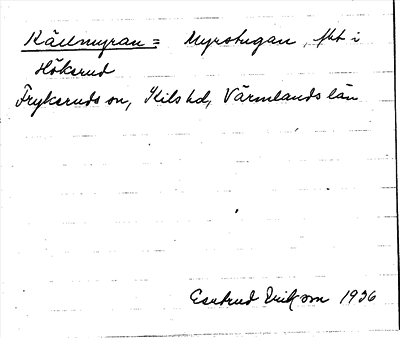 Källmyran = Myrstugan, fht i
Höksrud
Frykeruds sn, Kils hd, Värmlands län
Gertrud Ericsson 1936